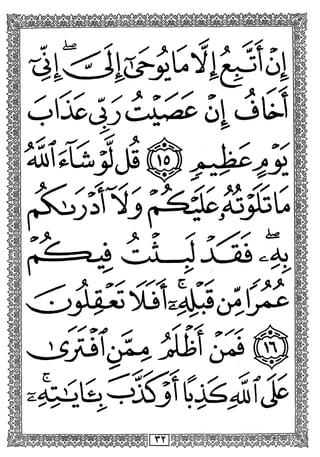 إِنۡ أَتَّبِعُ إِلَّا مَا يُوحَىٰٓ إِلَيَّۖ إِنِّيٓ
أَخَافُ إِنۡ عَصَيۡتُ رَبِّي عَذَابَ
يَوۡمٍ عَظِيمٖ ١٥ قُل لَّوۡ شَآءَ ٱللَّهُ
مَا تَلَوۡتُهُۥ عَلَيۡكُمۡ وَلَآ أَدۡرَىٰكُم
بِهِۦۖ فَقَدۡ لَبِثۡتُ فِيكُمۡ
عُمُرٗا مِّن قَبۡلِهِۦٓۚ أَفَلَا تَعۡقِلُونَ
١٦ فَمَنۡ أَظۡلَمُ مِمَّنِ ٱفۡتَرَىٰ
عَلَى ٱللَّهِ كَذِبًا أَوۡ كَذَّبَ بِـَٔايَٰتِهِۦٓۚ
٣٢